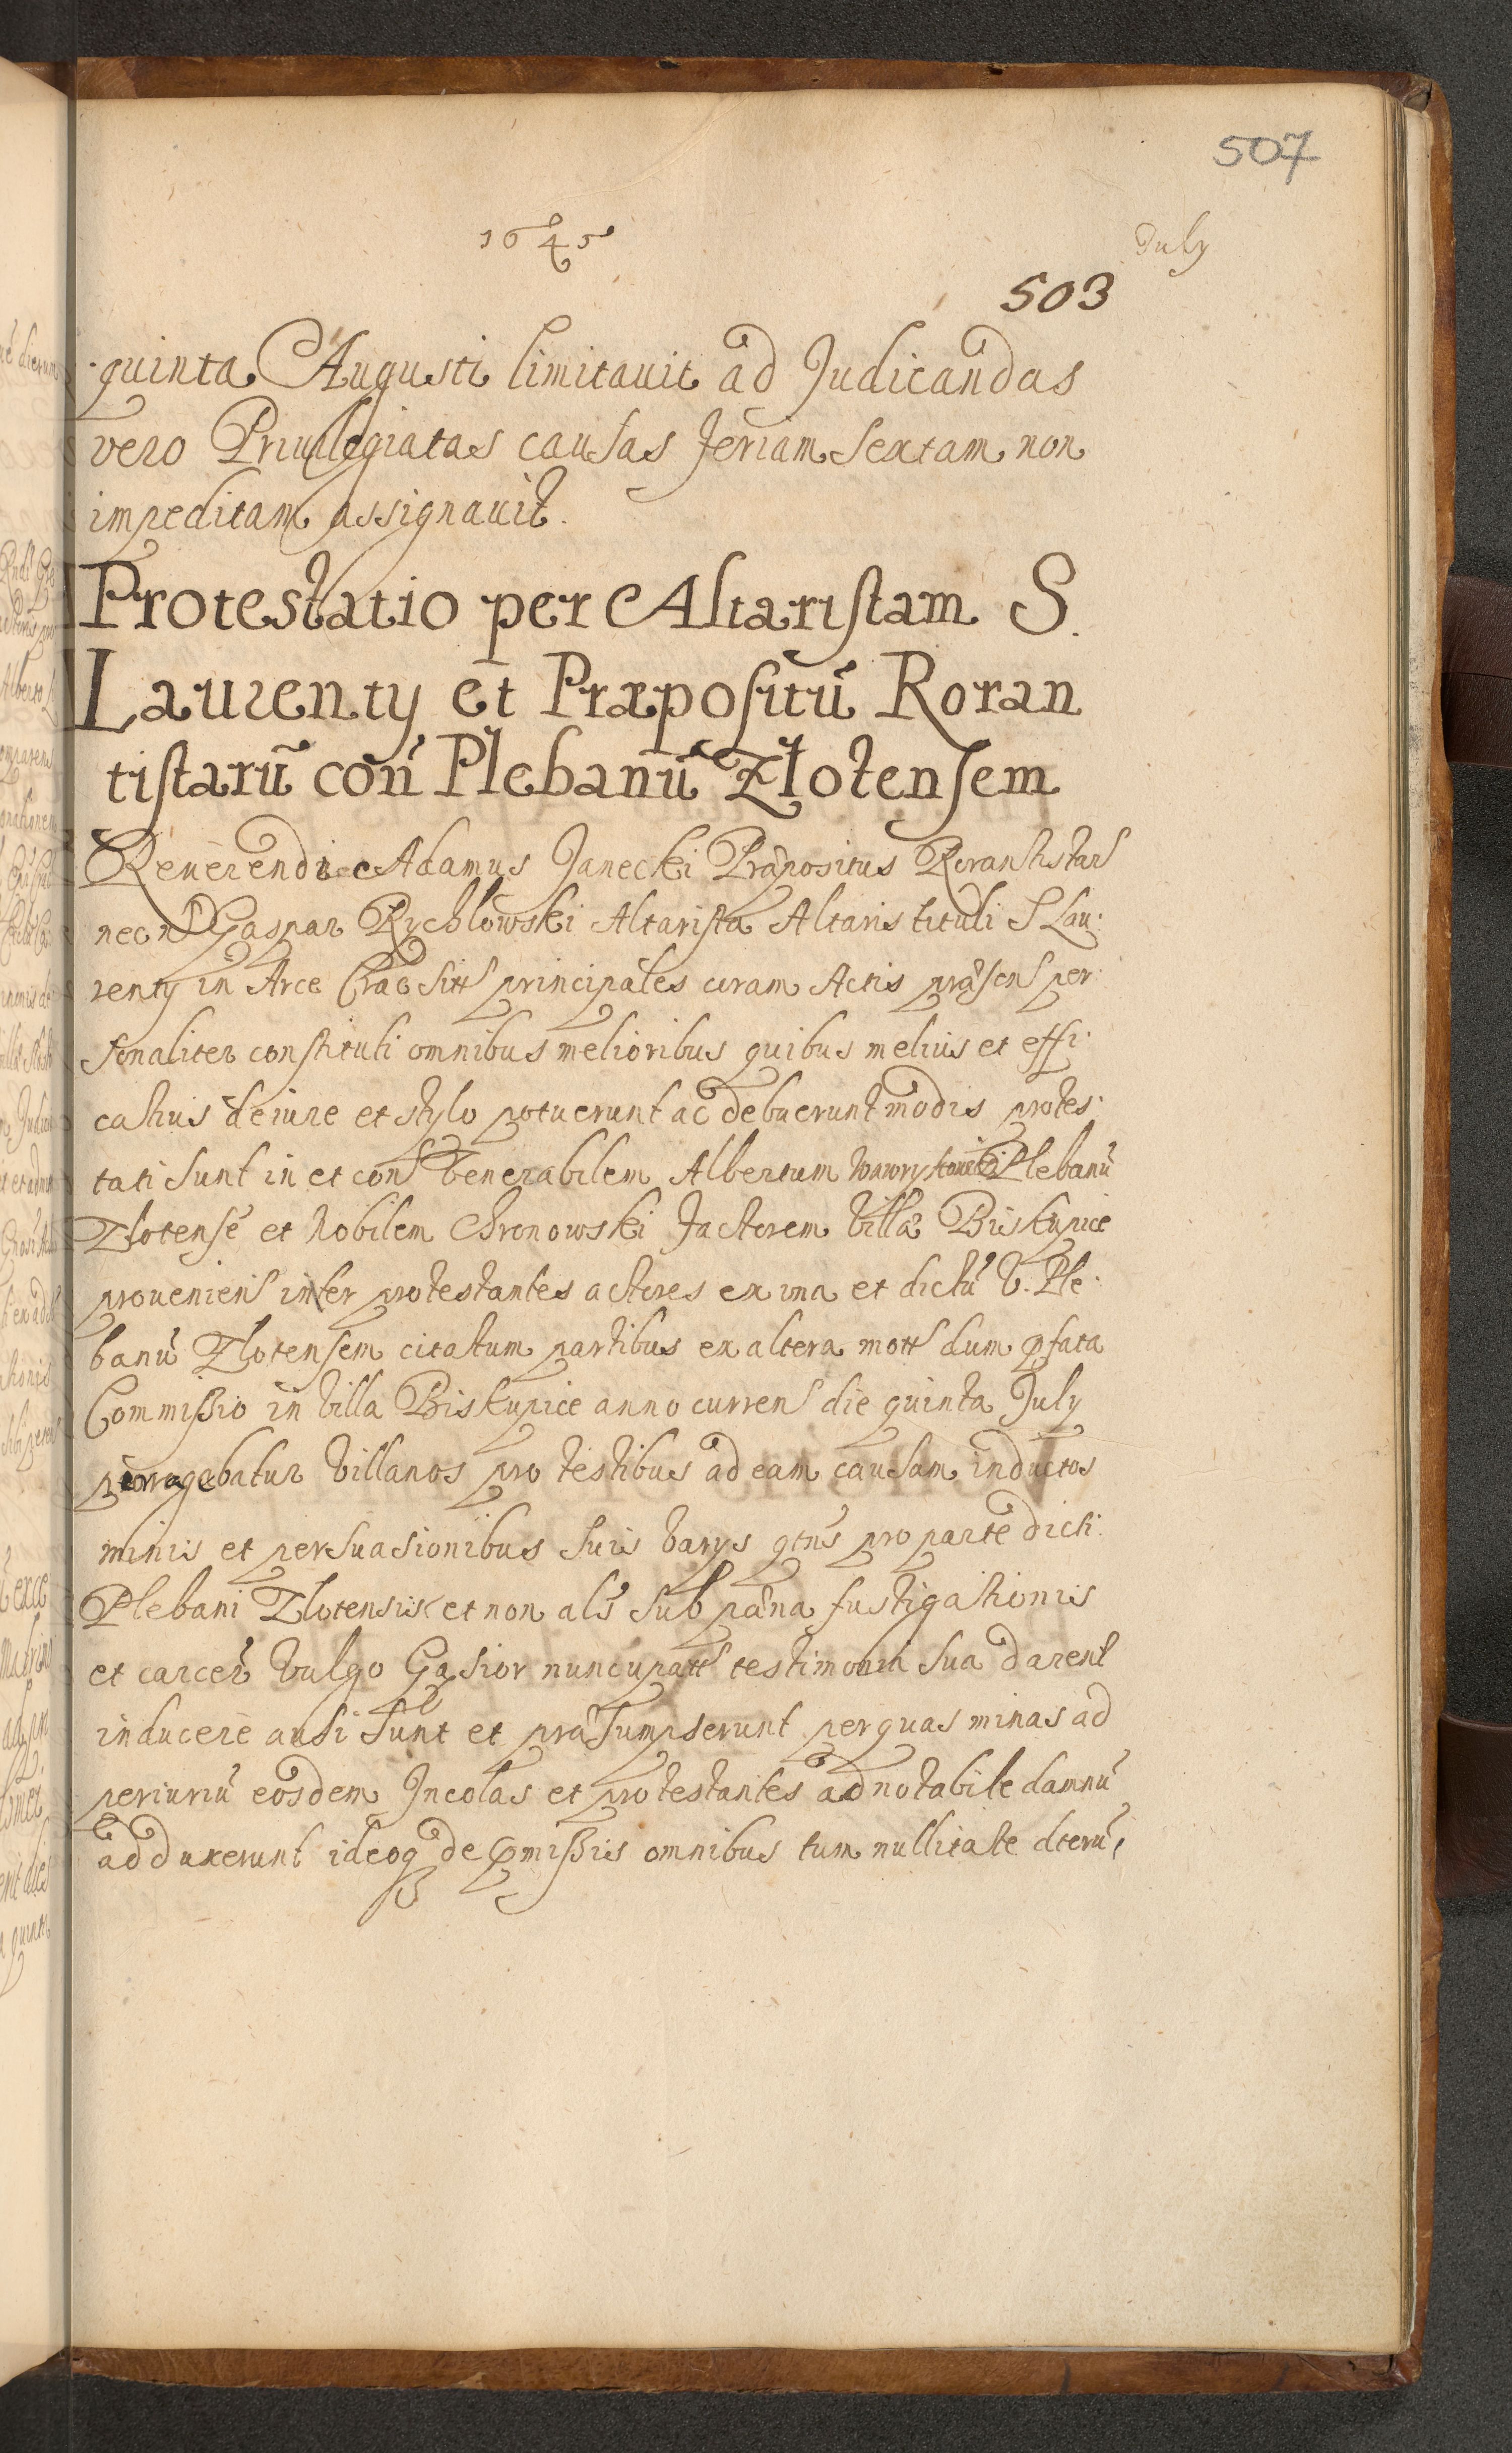 507
1645
July
503
quinta Augusti limitauit ad Judicandas
vero Priuilegiatas causas feriam sextam non
impeditam assignauit.
Protestatio per Altaristam S.
Laurenty et Præpositũ Roran
tistarũ con Plebanũ Złotensem
Reuerendi Adamus Janecki Præpositus Rorantistar
necn Gaspar Rychlowski Altarista Altaris tituli S Lau:
renty in Arce Crac sitt principales coram Actis præsen per:
sonaliter constituti omnibus melioribus quibus melius et effi:
catius de iure et stylo potuerunt ac debuerunt modis protes:
tati sunt in et con Venerabilem Albertum Plebanũ
Zlotensẽ et Nobilem Chronowski factorem Villæ Biskupice
prouenien inter protestantes actores ex una et dictũ V. Ple:
banũ Zlotensem citatum partibus ex altera mott dum pfata
Commissio in Villa Biskupice anno curren die quinta July
peragebatur Villanos pro testibus ad eam causam inductos
minis et persuasionibus suis varys qtns pro parte dicti
Plebani Zlotensis et non als sub pæna fustigationis
et carcer Vulgo Gąsior nuncupatt testimonia sua darent
inducere ausi sunt et præsumpserunt per quas minas ad
periuriũ eosdem Incolas et protestantes ad notabile damnũ
adduxerunt ideoq de pmissis omnibus tum nullitate dterũ